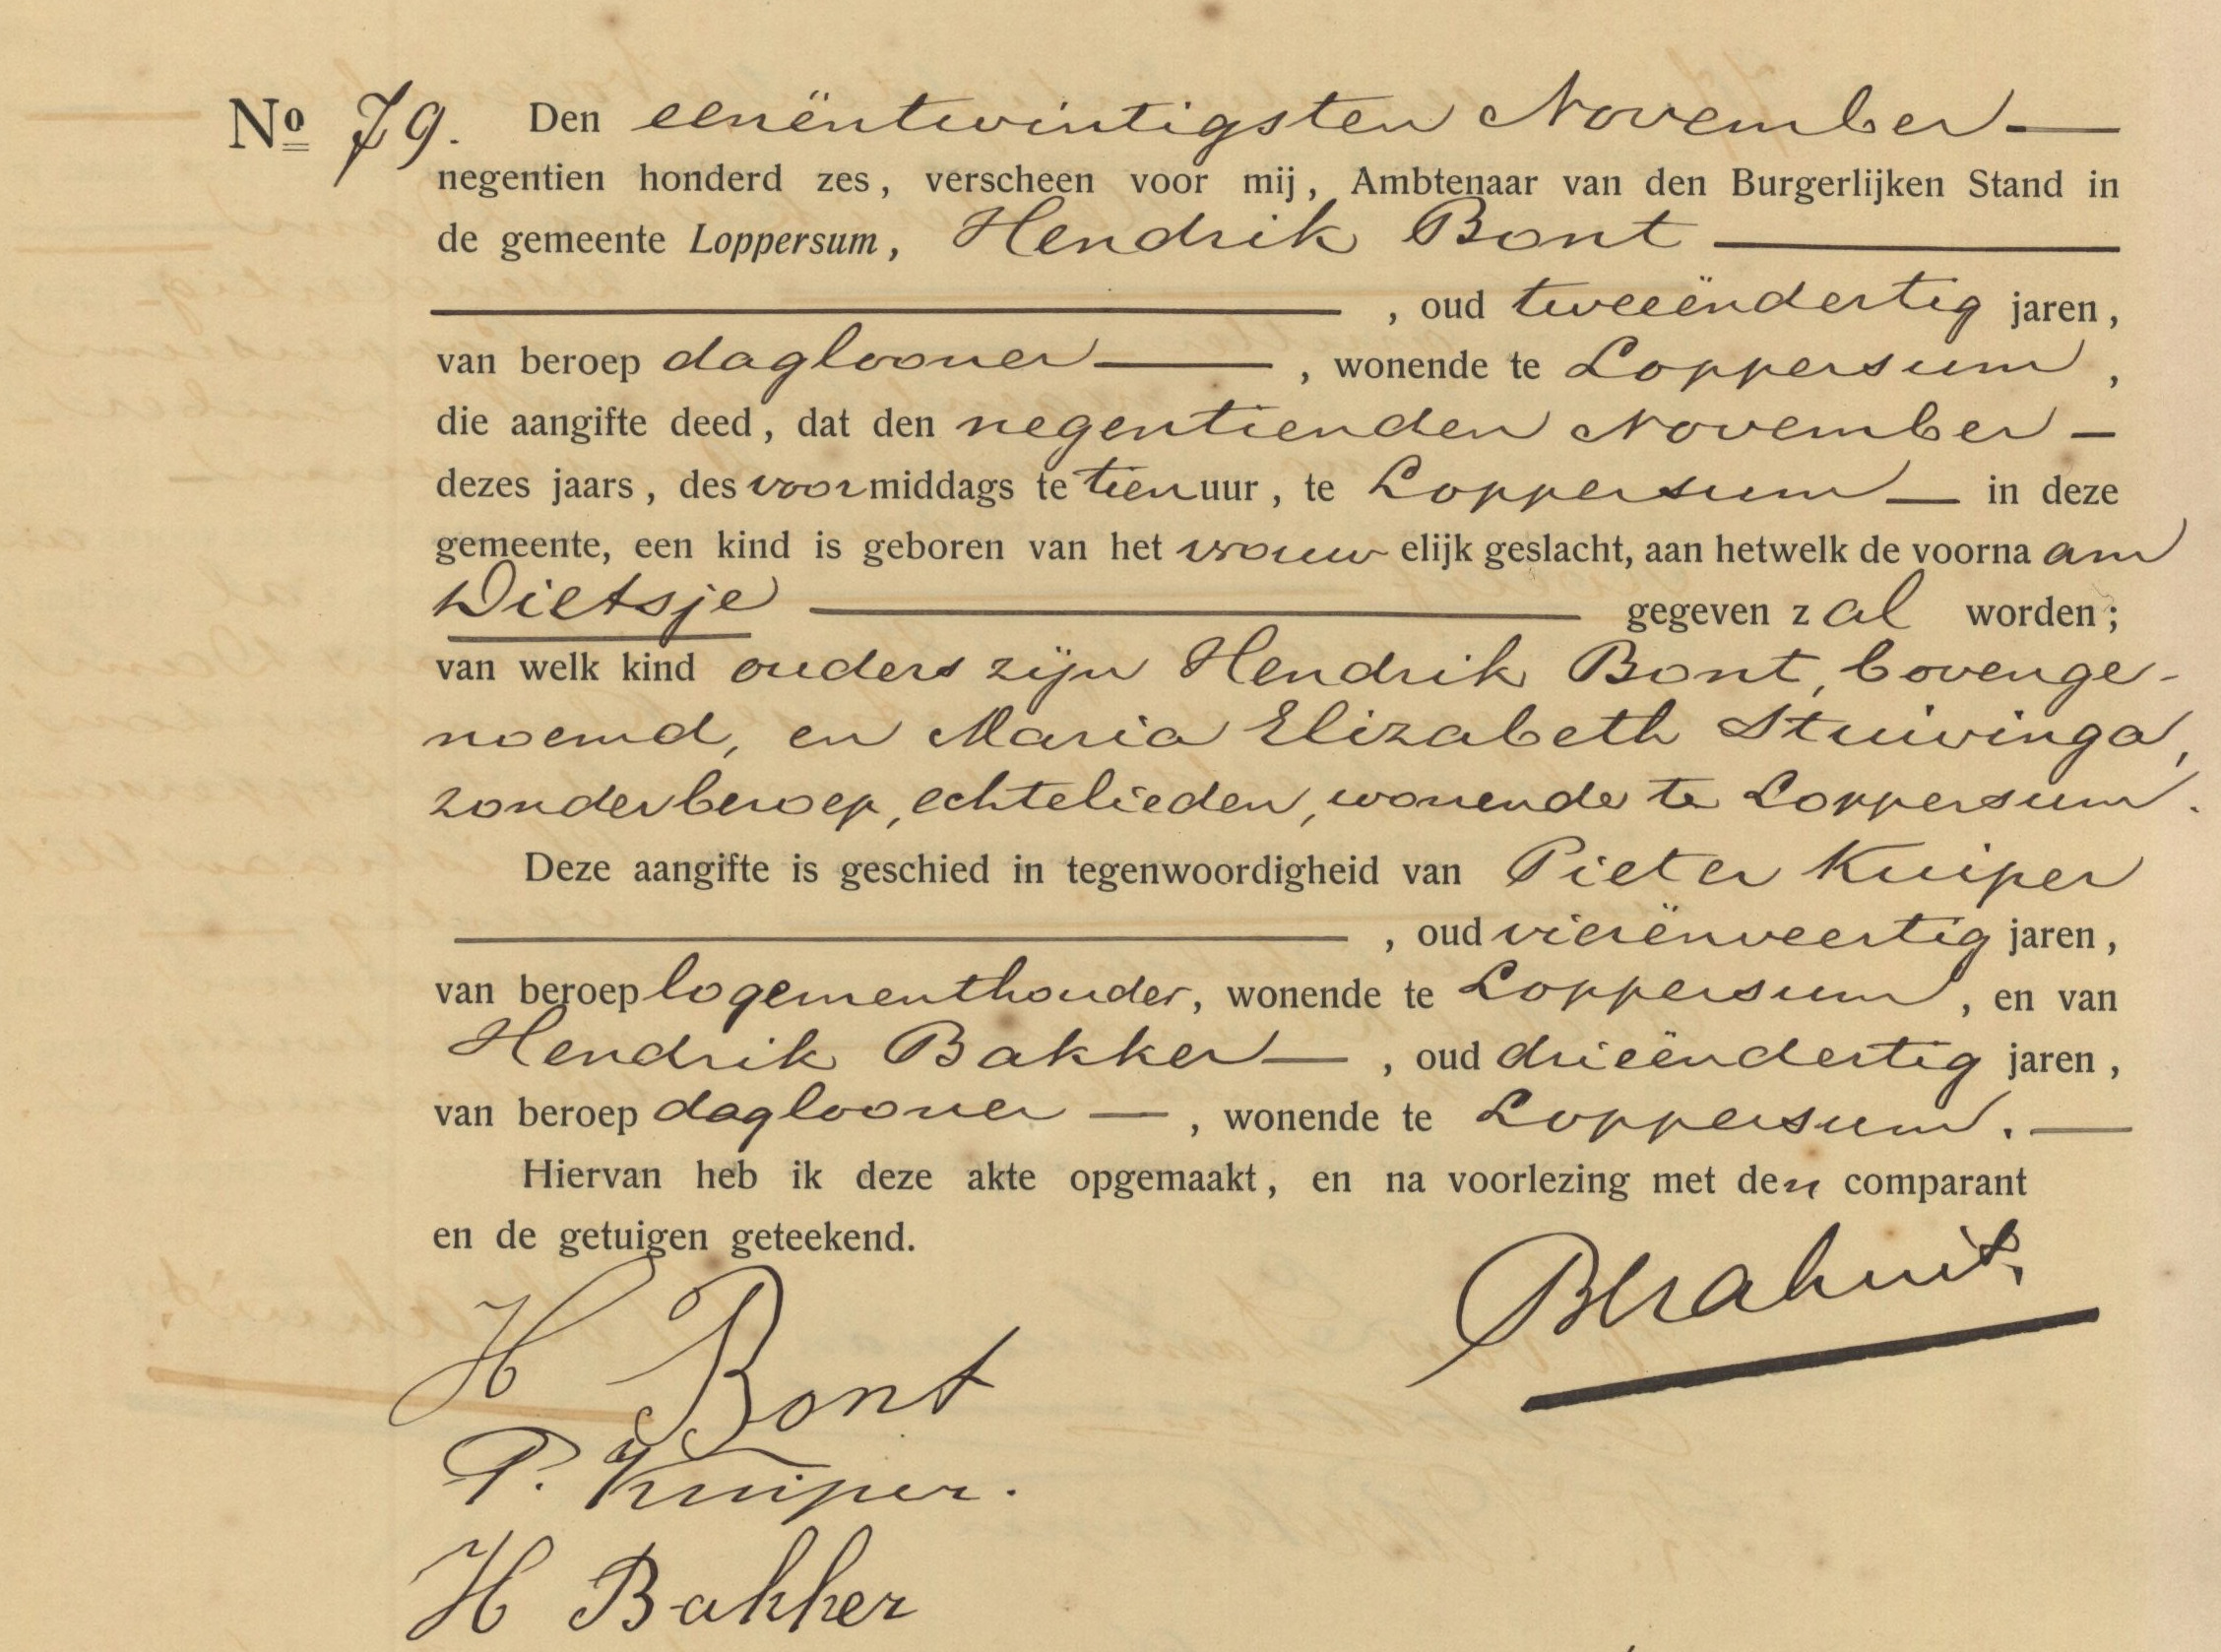 No 79. Den eenëntwintigsten November
negentien honderd zes, verscheen voor mij, Ambtenaar van den Burgerlijken Stand in
de gemeente Loppersum, Hendrik Bont
, oud tweeëndertig jaren,
van beroep daglooner, wonende te Loppersum,
die aangifte deed, dat den negentienden November
dezes jaars, des voormiddags te tien uur, te Loppersum in deze
gemeente, een kind is geboren van het vrouwelijk geslacht, aan hetwelk de voornaam
Dietsje gegeven zal worden;
van welk kind ouders zijn Hendrik Bont, bovenge-
noemd, en Maria Elizabeth Stuivinga,
zonder beroep, echtelieden, wonende te Loppersum.
Deze aangifte is geschied in tegenwoordigheid van Pieter Kuiper
, oud vierënveertig jaren,
van beroep logementhouder, wonende te Loppersum, en van
Hendrik Bakker, oud drieëndertig jaren,
van beroep daglooner, wonende te Loppersum.
Hiervan heb ik deze akte opgemaakt, en na voorlezing met den comparant
en de getuigen geteekend.
H Bont
P. Kuiper.
H Bakker